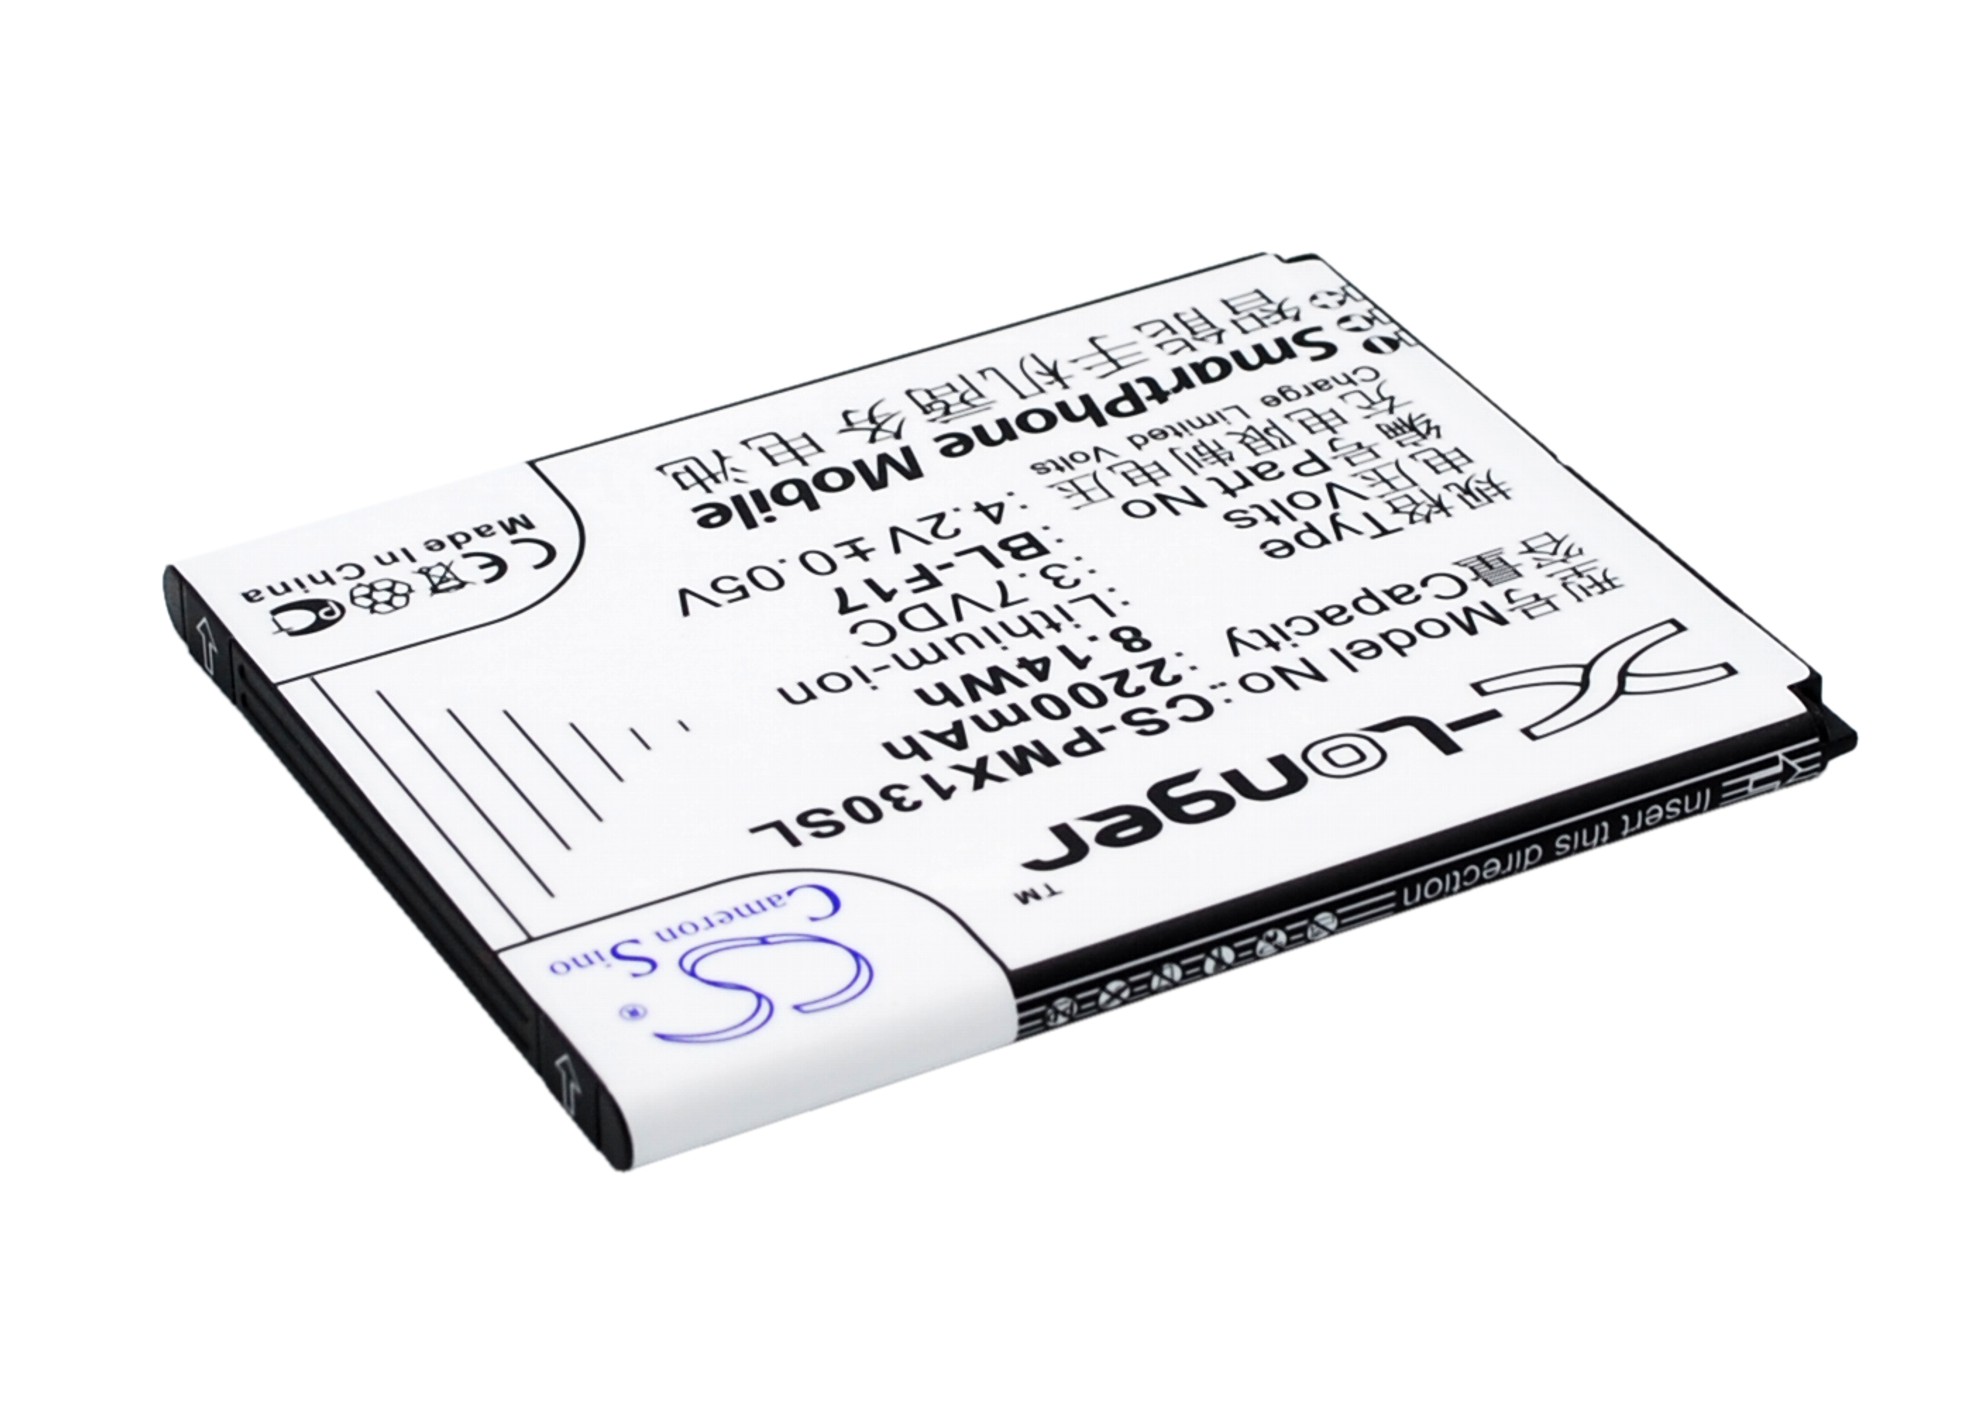 X-Longer™
型号Model No.:CS-PMX130SL
容量Capacity :2200mAh
8.14Wh
规格Type :Lithium-ion
电压Volts :3.7VDC
编号Part No :BL-F17
充电限制电压 :4.2V±0.05V
Charge Limited Volts
SmartPhone Mobile
智能手机商务电池
CS
Cameron Sino®
CE
Made In China
Insert this direction